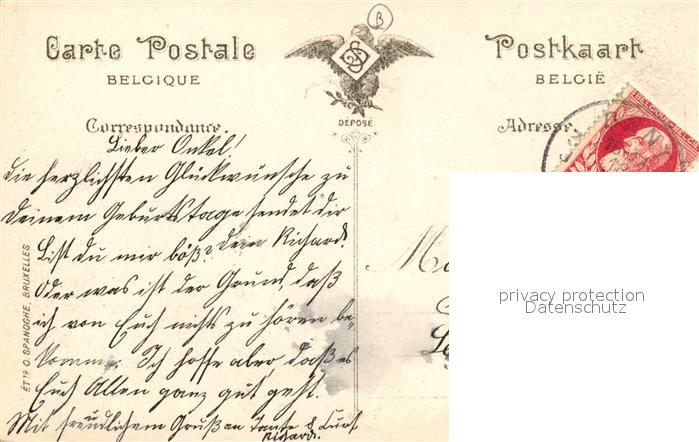 B
Carte Postale
Postkaart
BELGIQUE
BELGIË
DÉPOSÉ
Correspondance.
Adresse.
BELGIQUE·BELGIË
Lieber Onkel!
Die herzlichsten Glückwünsche zu
Deinem Geburtstage sendet dir
Dein Richard.
Bist du mir böß?
Oder was ist der Grund, daß
ich von Euch nichts zu hören be-
komme. Ich hoffe aber, daß es
Euch Allen ganz gut geht.
Mit freundlichem Gruß an Tante &
Richard.
ÉTTS O. SPANOGHE, BRUXELLES
privacy protection
Datenschutz